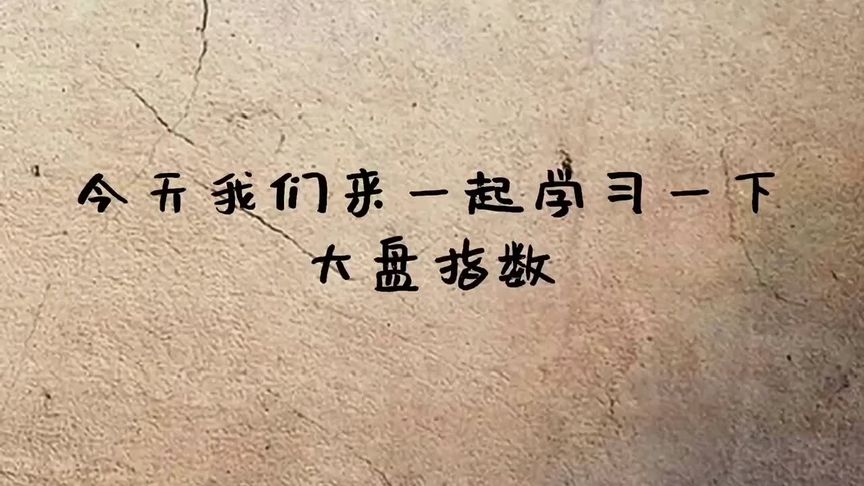 今天我们来一起学习一下
大盘指数